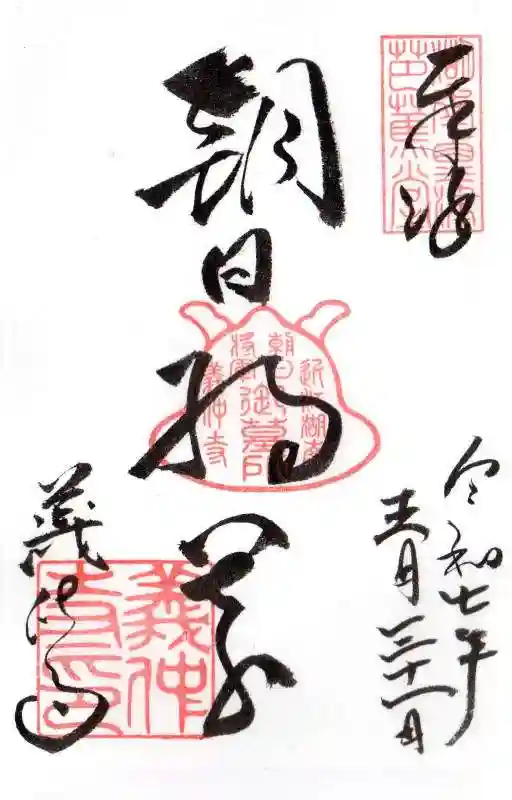 奉拝
芭蕉堂
朝日将軍
近江湖南
朝日
将軍
御墓所
義仲寺
義仲寺
義仲
寺印
令和七年
五月三十一日